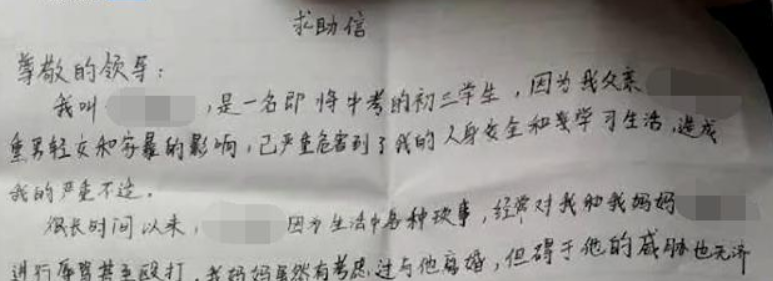 求助信
尊敬的领导：
我叫，是一名即将中考的初三学生，因为我父亲
重男轻女和家暴的影响，已严重危害到了我的人身安全和学习生活，造成
我的严重不适。
很长时间以来，因为生活中各种琐事，经常对我和我妈妈
进行辱骂甚至殴打，我妈妈虽然有考虑过与他离婚，但碍于他的威胁也无济